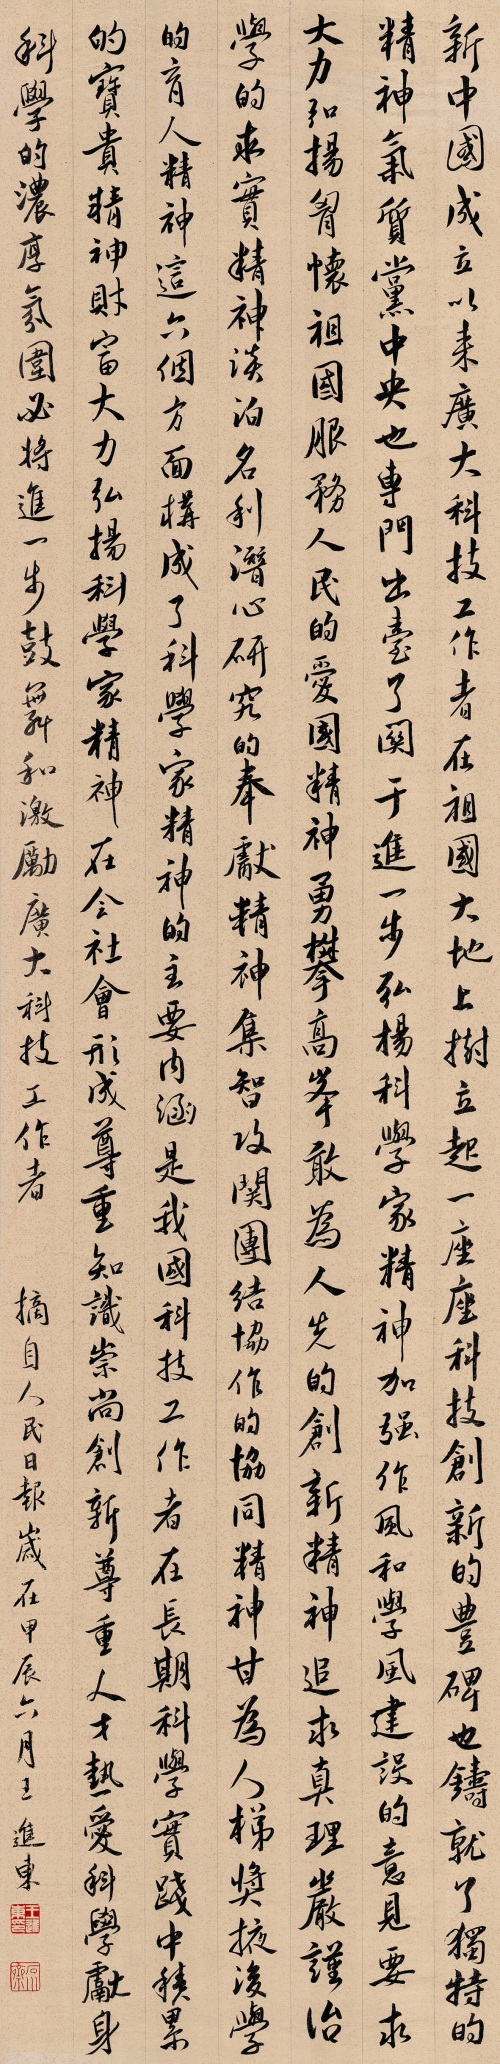 新中國成立以来廣大科技工作者在祖國大地上樹立起一座座科技創新的豊碑也鑄就了獨特的
精神氣質黨中央也專門出臺了関于進一步弘楊科學家精神加强作風和學風建設的意見要求
大力弘揚胷懷祖國服務人民的愛國精神勇攀高峯敢為人先的創新精神追求真理嚴謹治
學的求實精神淡泊名利潛心研究的奉獻精神集智攻関團结協作的協同精神甘為人梯奬掖後學
的育人精神這六個方面構成了科學家精神的主要内涵是我國科技工作者在長期科學實踐中積累
的寶貴精神財富大力弘揚科學家精神在全社會形成尊重知識崇尚創新尊重人才熱愛科學獻身
科學的濃厚氛圍必将進一步鼓舞和激勵廣大科技工作者 摘自人民日報歲在甲辰六月王進東